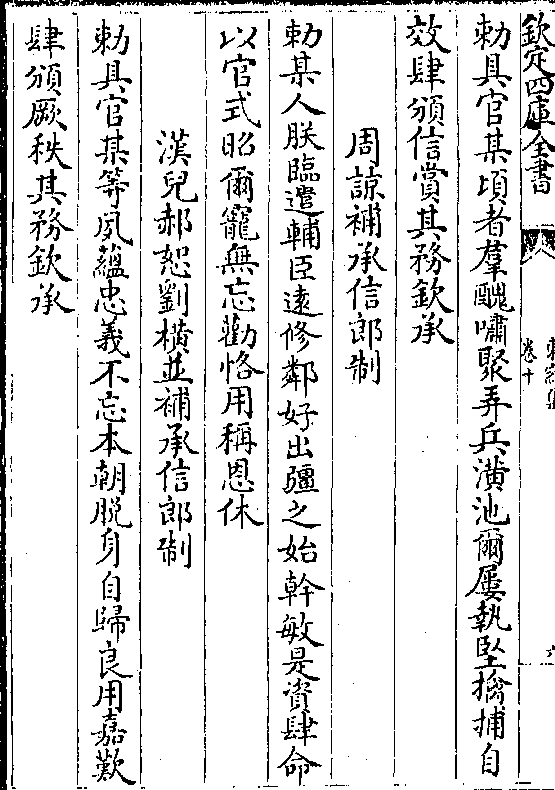 欽定四庫全書
卷十
勅具官某頃者羣醜嘯聚弄兵潢池爾屢執堅擒捕自
效肆頒信賞其務欽承
周諒補承信郎制
勅某人朕臨遣輔臣遠修鄰好出疆之始幹敏是資肆命
以官式昭爾寵無忘勸恪用稱恩休
漢兒郝恕劉橫並補承信郎制
勅具官某等夙蘊忠義不忘本朝脫身自歸良用嘉歎
肆頒厥秩其務欽承